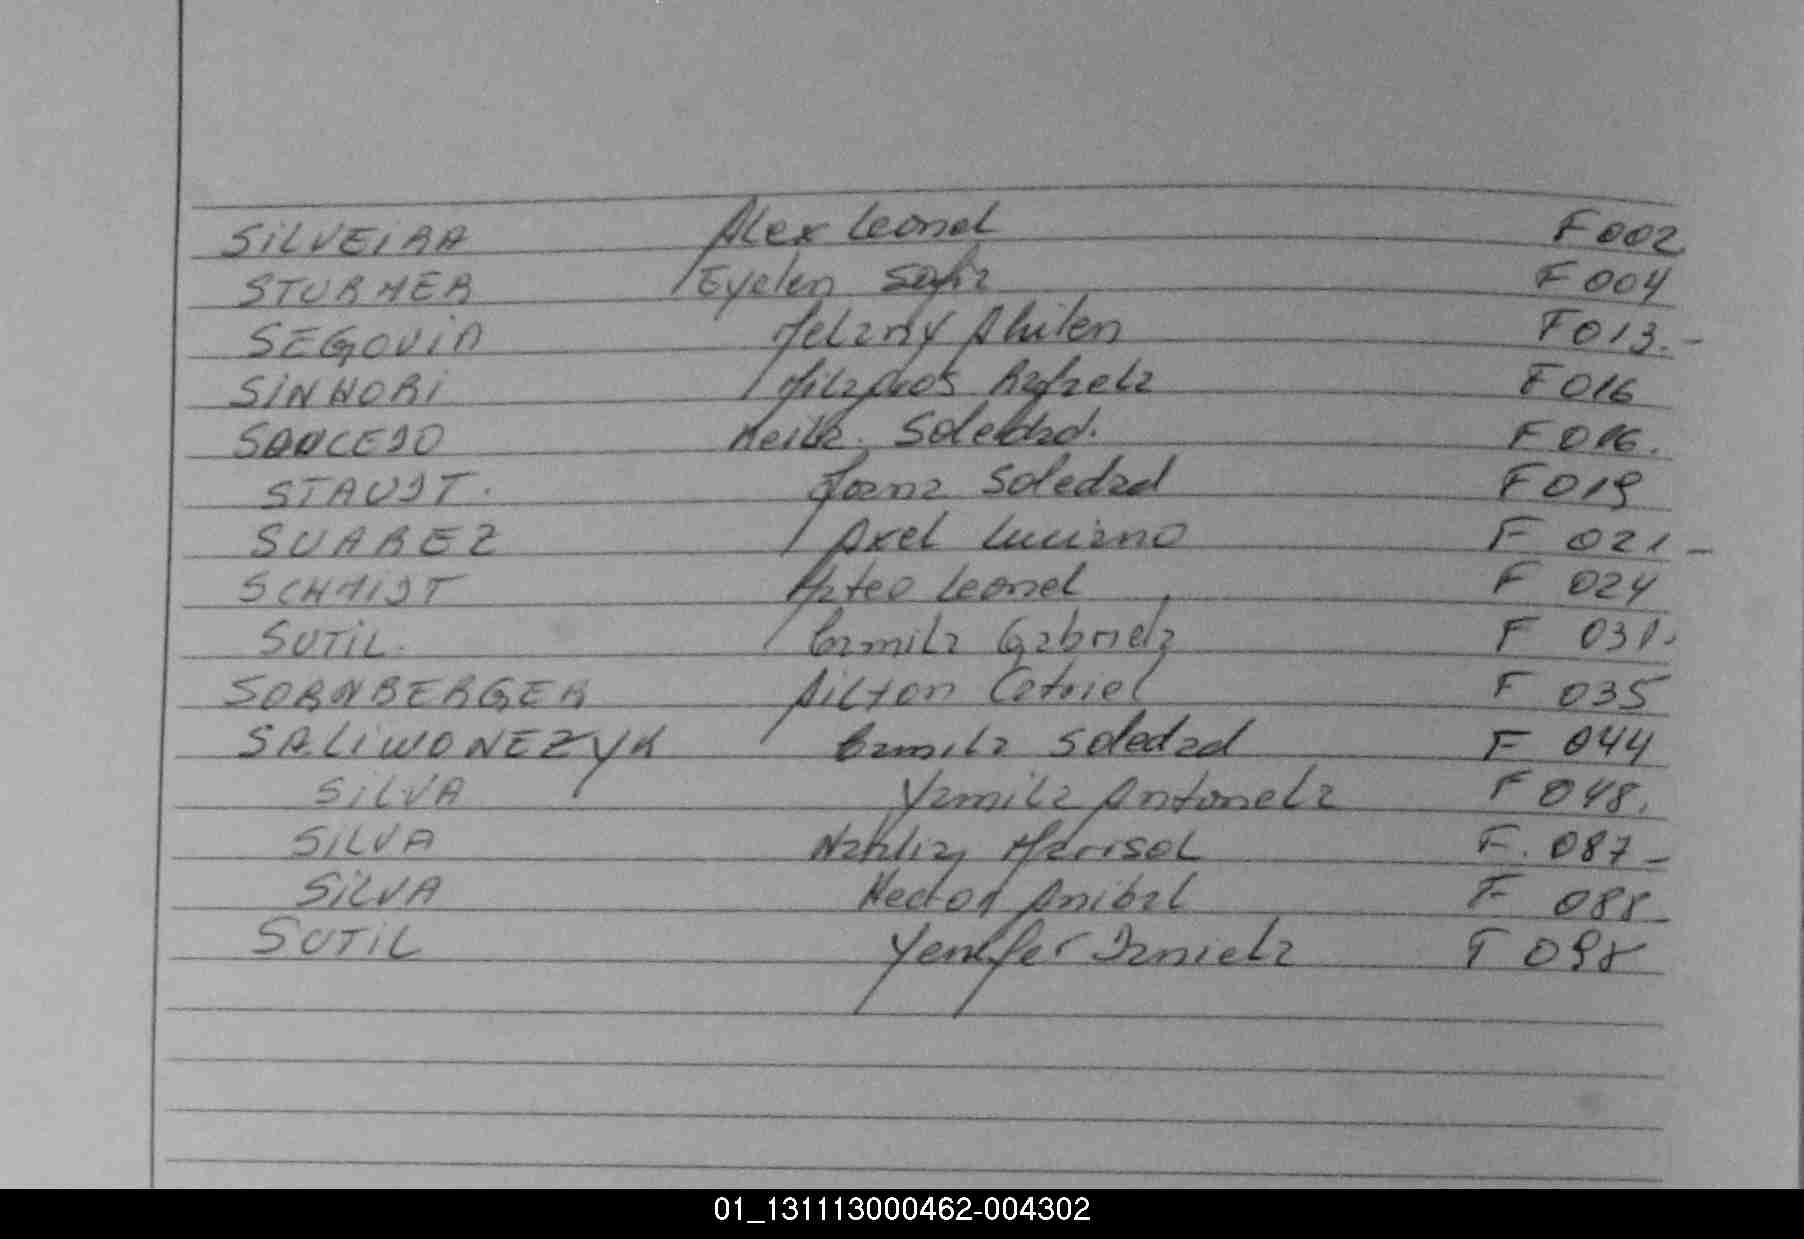 SILVEIRA Alex Leonel F002
STURMER Eyelen Sofia F004
SEGOVIA Melany Ahilen F013.-
SINHORI Milagros Rafaela F016
SAUCEDO Keila. Soledad. F016.
STAUDT. Joana Soledad F019
SUAREZ Axel Luciano F 021-
SCHMIDT Mateo Leonel F 024
SUTIL. Camila Gabriela F 031.
SORNBERGER Ailton Catriel F 035
SALIWONEZYK Camila Soledad F 044
SILVA Yamila Antonela F 048.
SILVA Nahlia Marisol F. 087-
SILVA Hector Anibal F 088-
SUTIL Yenifer Daniela F 098
01_131113000462-004302